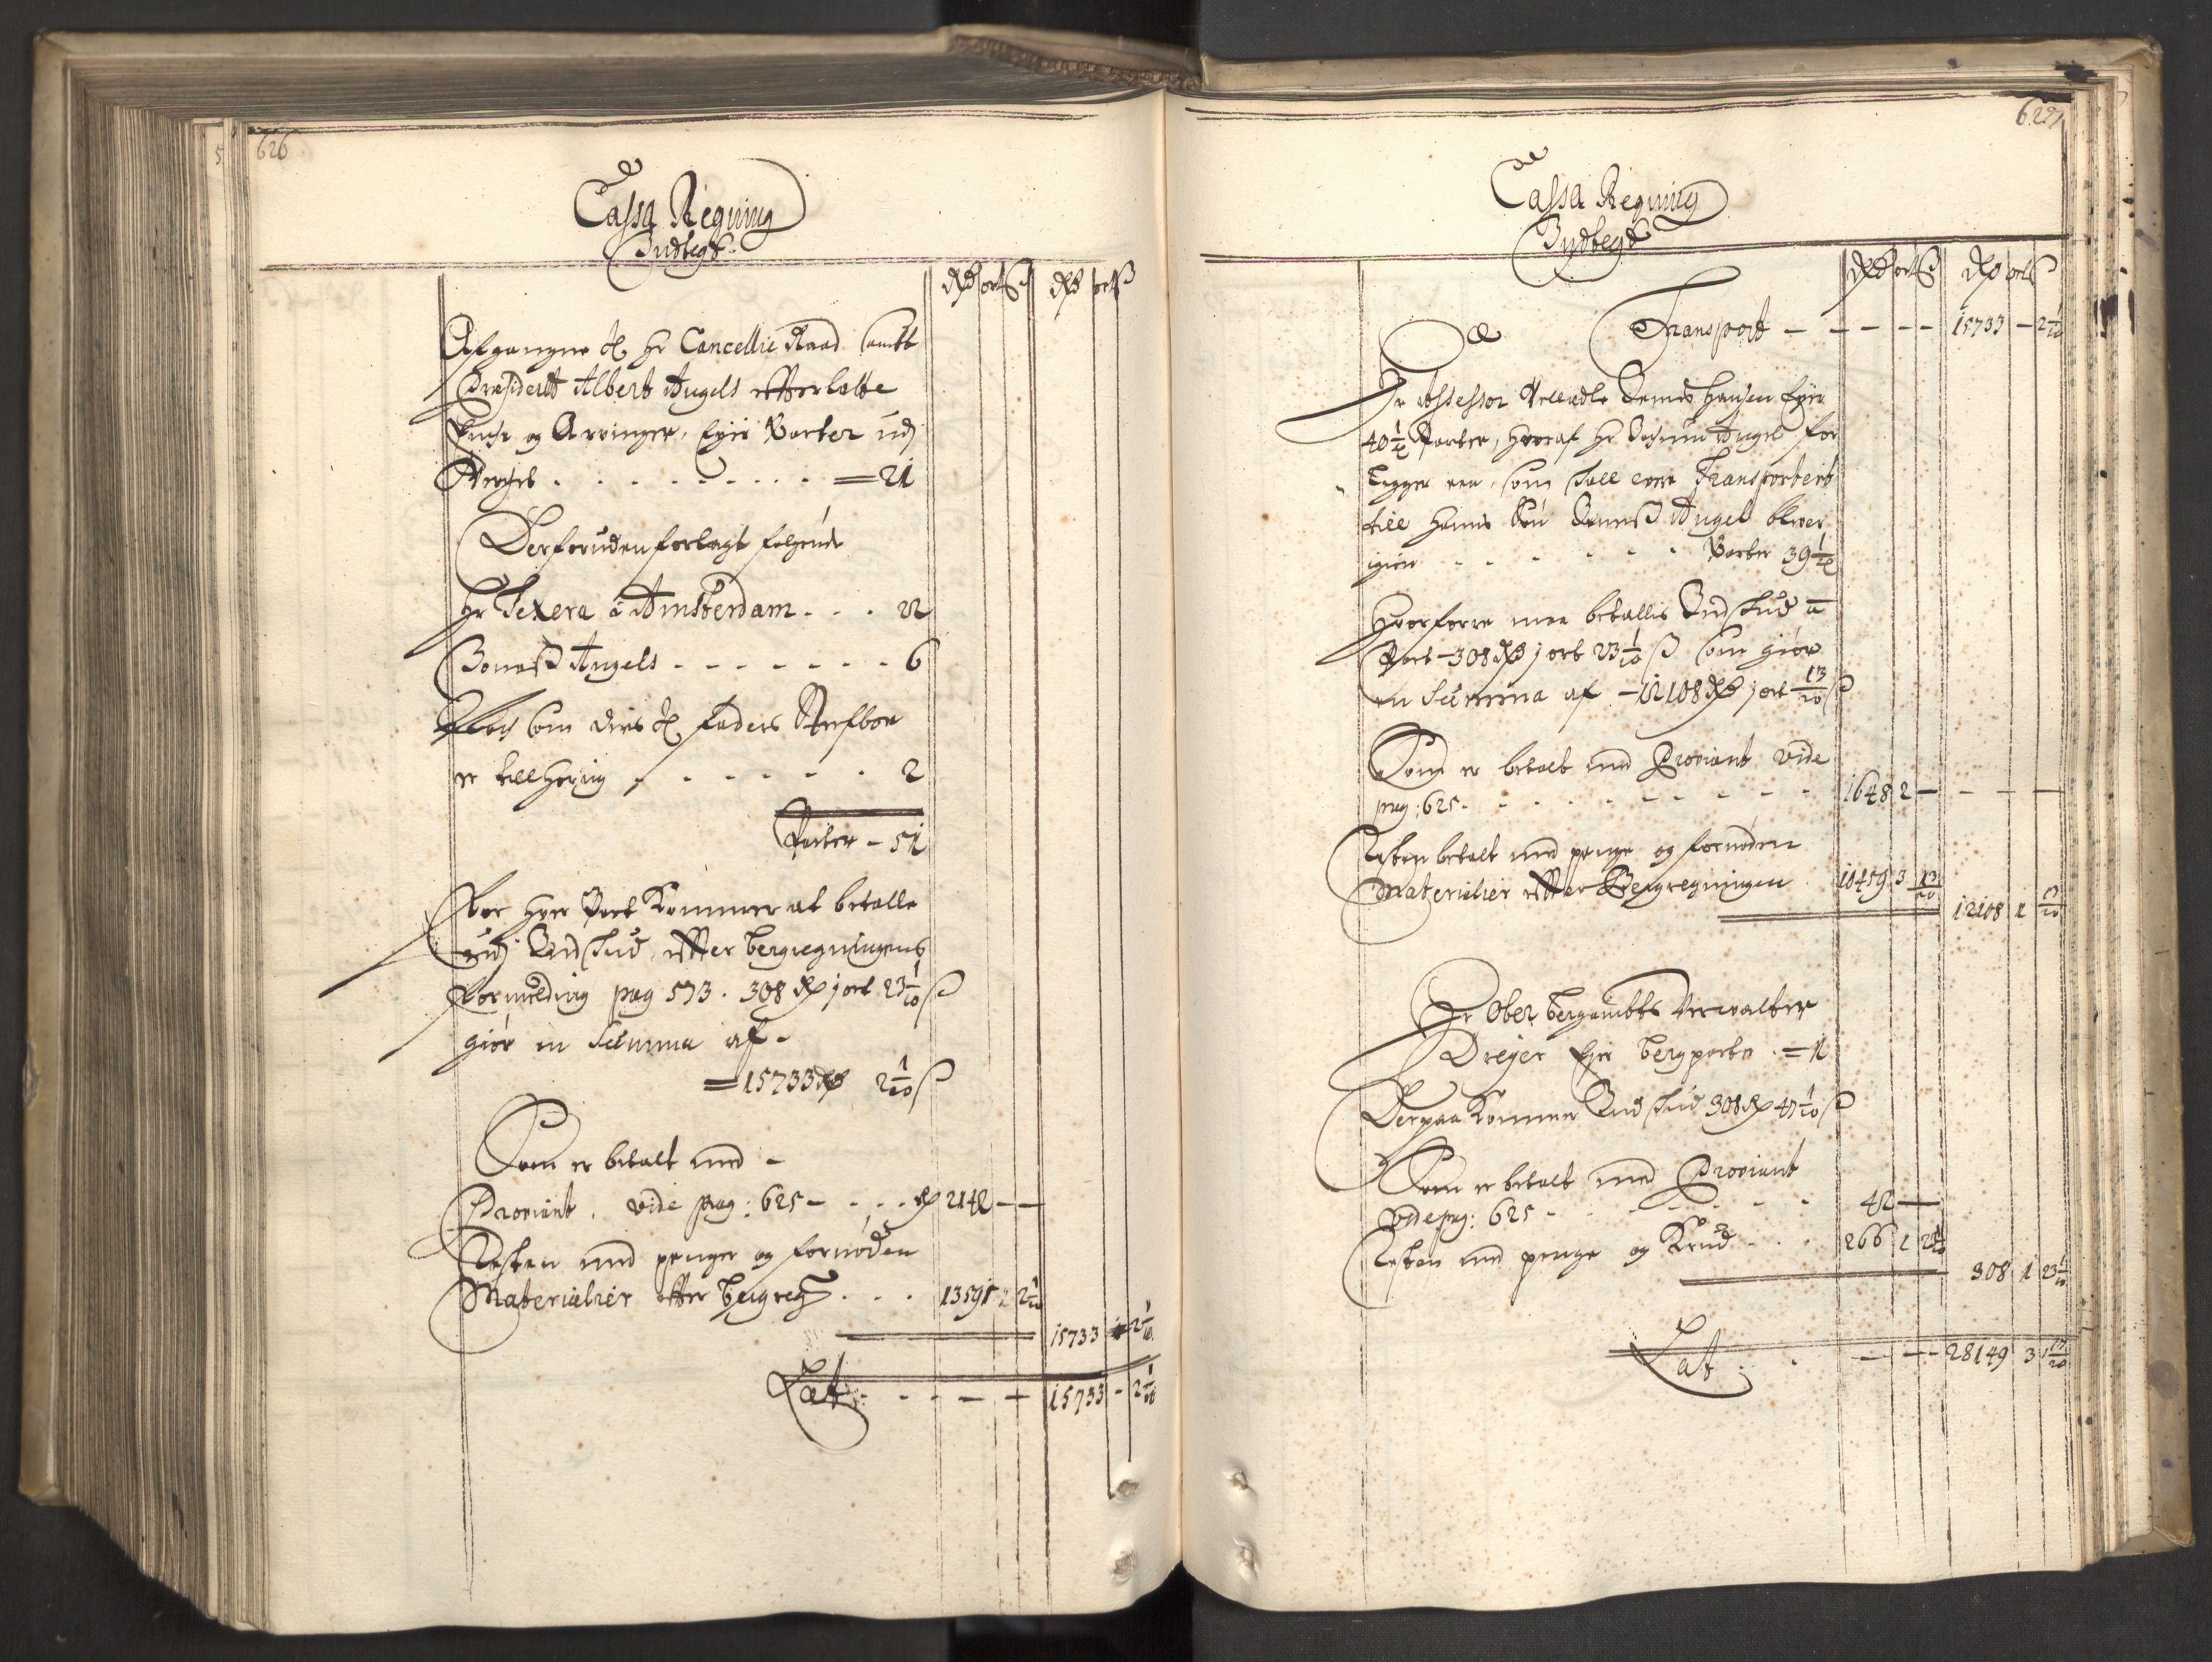 626
Cassa Regning
Indtegt
Rdr ort ß Rdr ort ß
Afgangne Sl. Hr Cancellie Raad samtt
Præsidentt Albert Angels efterlatte
Enche og Arvinger, Eyer Parter udj
Werchet . . . . . . . . = 21
Derforuden forlagt følgende
Hr Texera i Amsterdam . . . 22
Angels - - - - - - - 6
som Sl. Faders
er tillhørig - - - - - - 2
Parter - 51
For hver Part kommer at betalle
udj Indskud, effter bergregningens
formelding pag 573. 308 Rdr j ort 23 1/10 ß
giør en Summa af -
= 15733 Rdr 2 1/10 ß
Som er betalt med -
Proviant. vide pag: 625 - . . . Rdr 2142 - -
Resten med penger og fornøden
Materialier effter bergregn . . . 13591 2 1/10
15733 - 2 1/10
Lat: - - - - 15733 - 2 1/10
627
Cassa Regning
Indtegt
Rdr ort ß Rdr ort ß
Transport - - - - - 15733 - 2 1/10
Hr Assessor Velædle Hansen Eyer
40 1/2 Parter, hvoraf Hr Angel for
Ligger een, som skall være Transportert
till hanns Søn Angel bliver
igien - - - - - - Parter 39 1/4
Hvorforre maa betallis Indskud a
Part - 308 Rdr j ort 23 1/10 ß som giør
en Summa af - 12108 Rdr j ort 13/20 ß
Som er betalt med Proviant vide
pag: 625 - - - - - - - - 1648 2 - - - -
Resten betalt med penge og fornøden
Materialier effter Bergregningen 10459 3 13/20
12108 1 13/20
Hr Ober bergambts Verwalter
Dreyer Eyer bergparter = 1
Derpaa kommer Indskud 308 Rdr 47 1/10 ß
Som er betalt med Proviant
vide pag: 625 - - - - - - 42 -
Resten med penge og Krud - . . 266 1 23 1/10
308 1 23 1/10
Lat: - - - - 28149 3 1 17/20